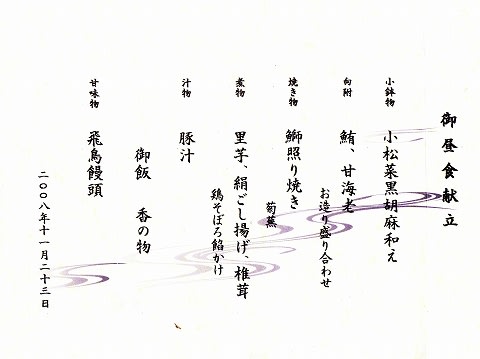 御昼食献立
小鉢物 小松菜黒胡麻和え
向附 鮪、甘海老
お造り盛り合わせ
焼き物 鰤照り焼き
菊蕪
煮物 里芋、絹ごし揚げ、椎茸
鶏そぼろ餡かけ
汁物 豚汁
御飯 香の物
甘味物 飛鳥饅頭
二〇〇八年十一月二十三日